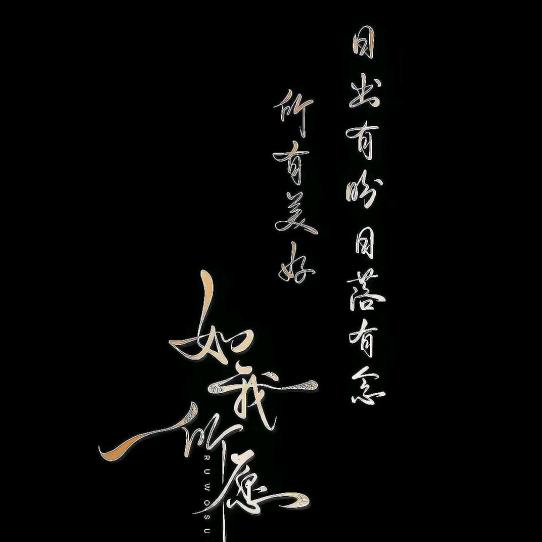 日出有盼日落有念
所有美好
如我所愿
RUWOSU